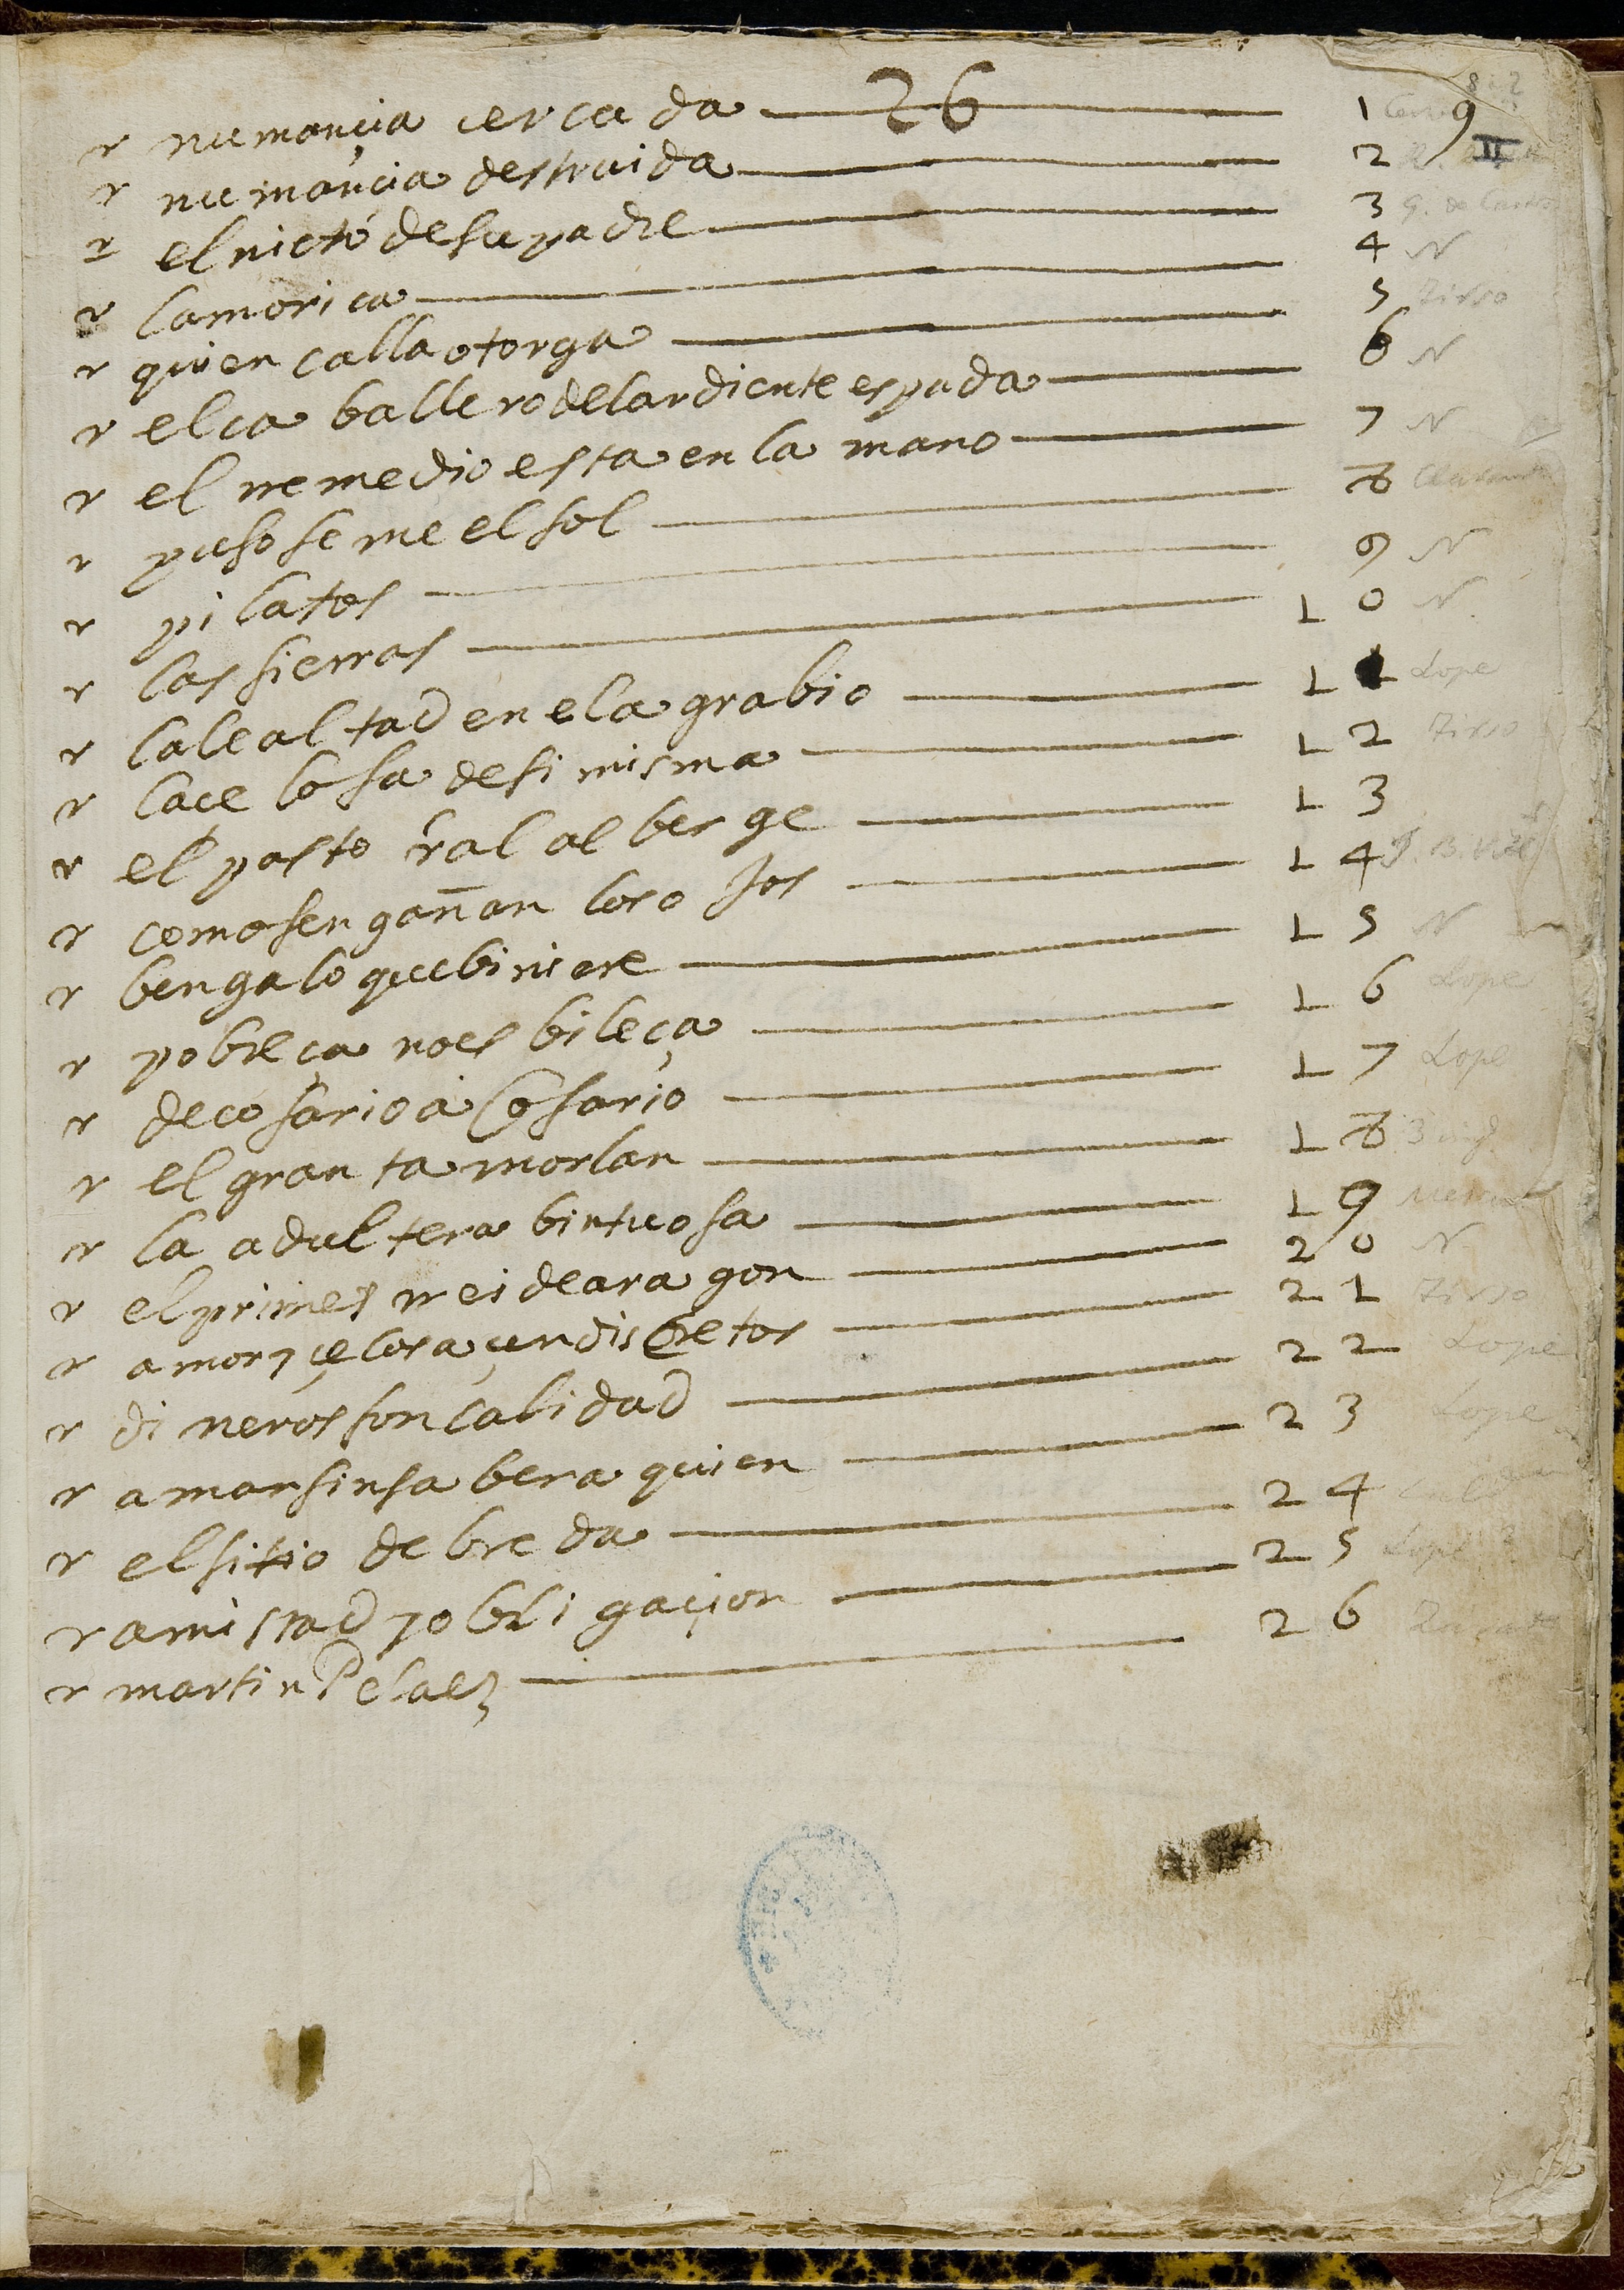 26
r numançia cercada 1 9
r numançia destruida 2 II
r el nieto de su padre 3 G. de Castro
r la morica 4 N
r quien calla otorga 5 Tirso
r el caballero del ardiente espada 6 N
r el rremedio esta en la mano 7 N
r pusoseme el sol 8
r pilatos 9 N
r las sierras 10 N
r la lealtad en el agrabio 11 Lope
r la çelosa de si misma 12 Tirso
r el pastoral alberge 13
r como sengañan los ojos 14 J. B. Vill
r benga lo que biniere 15 N
r pobreça no es bileça 16 Lope
r de cosario a cosario 17 Lope
r el gran tamorlan 18 3 ing
r la adultera birtuosa 19
r el primer rrei de aragon 20 N
r amor y çelos açen discretos 21 Tirso
r dineros son calidad 22 Lope
r amar sin saber a quien 23 Lope
r el sitio de breda 24
r amistad y obligaçion 25 Lope ?
r martin Pelaez 26